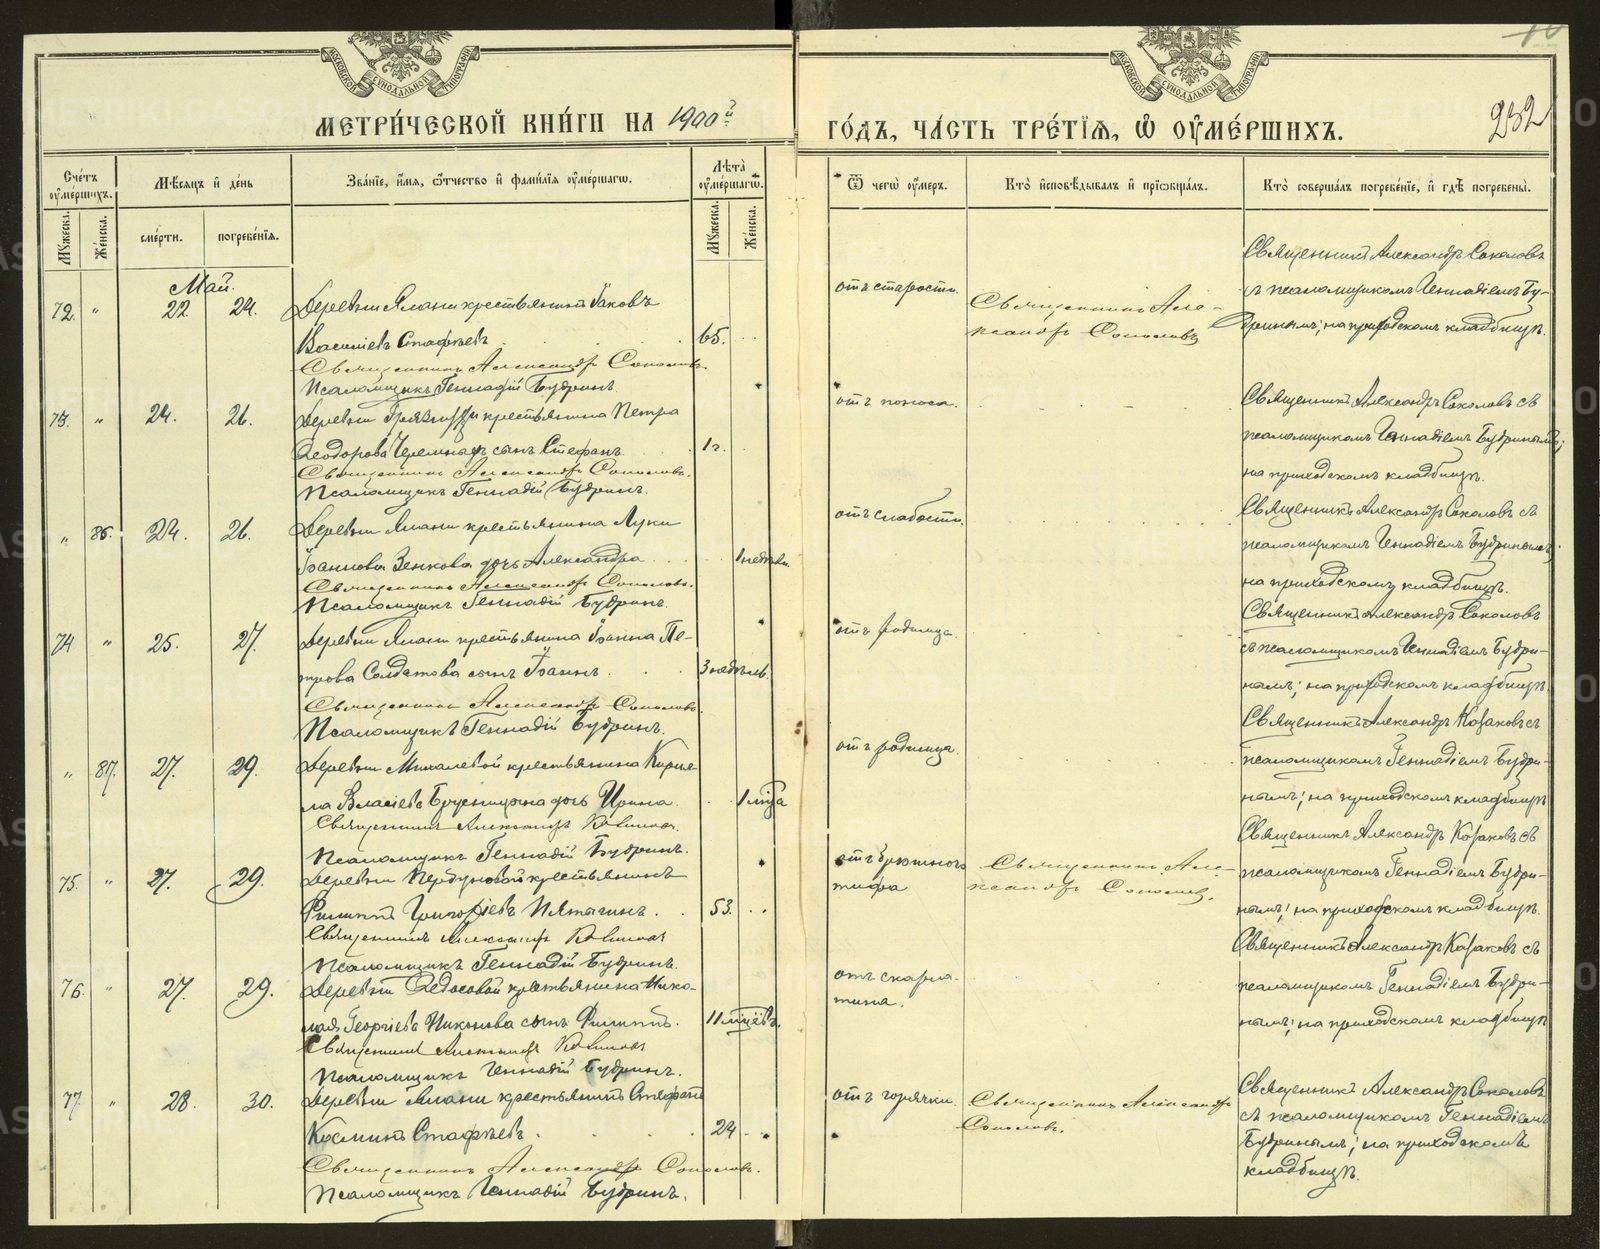 МОСКОВСКОЙ СѴНОДАЛЬНОЙ ТИПОГРАФІИ
МЕТРИ́ЧЕСКОЙ КНИ́ГИ НА 1900й
МОСКОВСКОЙ СѴНОДАЛЬНОЙ ТИПОГРАФІИ
ГО́ДЪ, ЧА́СТЬ ТРЕ́ТІЯ, Ѽ ОУ҆МЕ́РШИХЪ.
232
Сче́тъ оу҆ме́ршихъ.
Мѣ́сяцъ и҆ де́нь
Зва́ніе, и҆́мя, ѻ҆́тчество и҆ фами́лія оу҆ме́ршагѡ.
Лѣта̀ оу҆ме́ршагѡ.
Ѿ чегѡ̀ оу҆́меръ.
Кто̀ и҆сповѣ́дывалъ и҆ прїѻбща́лъ.
Кто̀ соверша́лъ погребе́ніе, и҆ гдѣ̀ погребены̀.
Мꙋ́жеска.
Же́нска.
сме́рти.
погребе́нія.
Мꙋ́жеска.
Же́нска.
Май.
72. " 22 24. Деревни Ялани крестьянинъ Іаковъ
Василіевъ Стафѣевъ 65.
Священникъ Александръ Соколовъ
Псаломщикъ Геннадій Будринъ.
отъ старости.
Священникъ Але-
ксандръ Соколовъ
Священникъ Александръ Соколовъ
съ псаломщикомъ Геннадіемъ Бу-
дринымъ; на приходскомъ кладбищѣ.
73. " 24. 26. Деревни крестьянина Петра
Ѳеодорова сынъ Стефанъ 1 г.
Священникъ Александръ Соколовъ.
Псаломщикъ Геннадій Будринъ.
отъ поноса.
Священникъ Александръ Соколовъ съ
псаломщикомъ Геннадіемъ Будринымъ;
на приходскомъ кладбищѣ.
" 86. 24. 26. Деревни Ялани крестьянина Луки
Іоаннова Зенкова дочь Александра 1 недѣли.
Священникъ Александръ Соколовъ.
Псаломщикъ Геннадій Будринъ.
отъ слабости.
Священникъ Александръ Соколовъ съ
псаломщикомъ Геннадіемъ Будринымъ;
на приходскомъ кладбищѣ.
74 " 25. 27. Деревни Ялани крестьянина Іоанна Пе-
трова Солдатова сынъ Іоаннъ. 3 недѣль.
Священникъ Александръ Соколовъ.
Псаломщикъ Геннадій Будринъ.
отъ родимца.
Священникъ Александръ Соколовъ
съ псаломщикомъ Геннадіемъ Будри-
нымъ; на приходскомъ кладбищѣ.
" 87. 27. 29. Деревни Михалевой крестьянина Кирил-
ла Власіева Брусницына дочь Ирина. 1 мѣца
Священникъ Александръ Козаковъ.
Псаломщикъ Геннадій Будринъ.
отъ родимца.
Священникъ Александръ Козаковъ съ
псаломщикомъ Геннадіемъ Будри-
нымъ; на приходскомъ кладбищѣ
75. " 27. 29. Деревни крестьянинъ
Филиппъ Григоріевъ Пятыгинъ. 53.
Священникъ Александръ Козаковъ
Псаломщикъ Геннадій Будринъ.
отъ брюшного
тифа
Священникъ Але-
ксандръ Соколовъ.
Священникъ Александръ Козаковъ съ
псаломщикомъ Геннадіемъ Будри-
нымъ; на приходскомъ кладбищѣ.
76. " 27. 29. Деревни Ѳедосовой крестьянина Нико-
лая Георгіева Никонова сынъ Филиппъ. 11 мѣцевъ.
Священникъ Александръ Козаковъ
Псаломщикъ Геннадій Будринъ.
отъ скарла-
тина.
Священникъ Александръ Козаковъ съ
псаломщикомъ Геннадіемъ Будри-
нымъ; на приходскомъ кладбищѣ
77. " 28. 30. Деревни Ялани крестьянинъ Стефанъ
Косминъ Стафѣевъ. 24
Священникъ Александръ Соколовъ.
Псаломщикъ Геннадій Будринъ.
отъ горячки.
Священникъ Александръ
Соколовъ.
Священникъ Александръ Соколовъ
съ псаломщикомъ Геннадіемъ
Будринымъ; на приходскомъ
кладбищѣ.